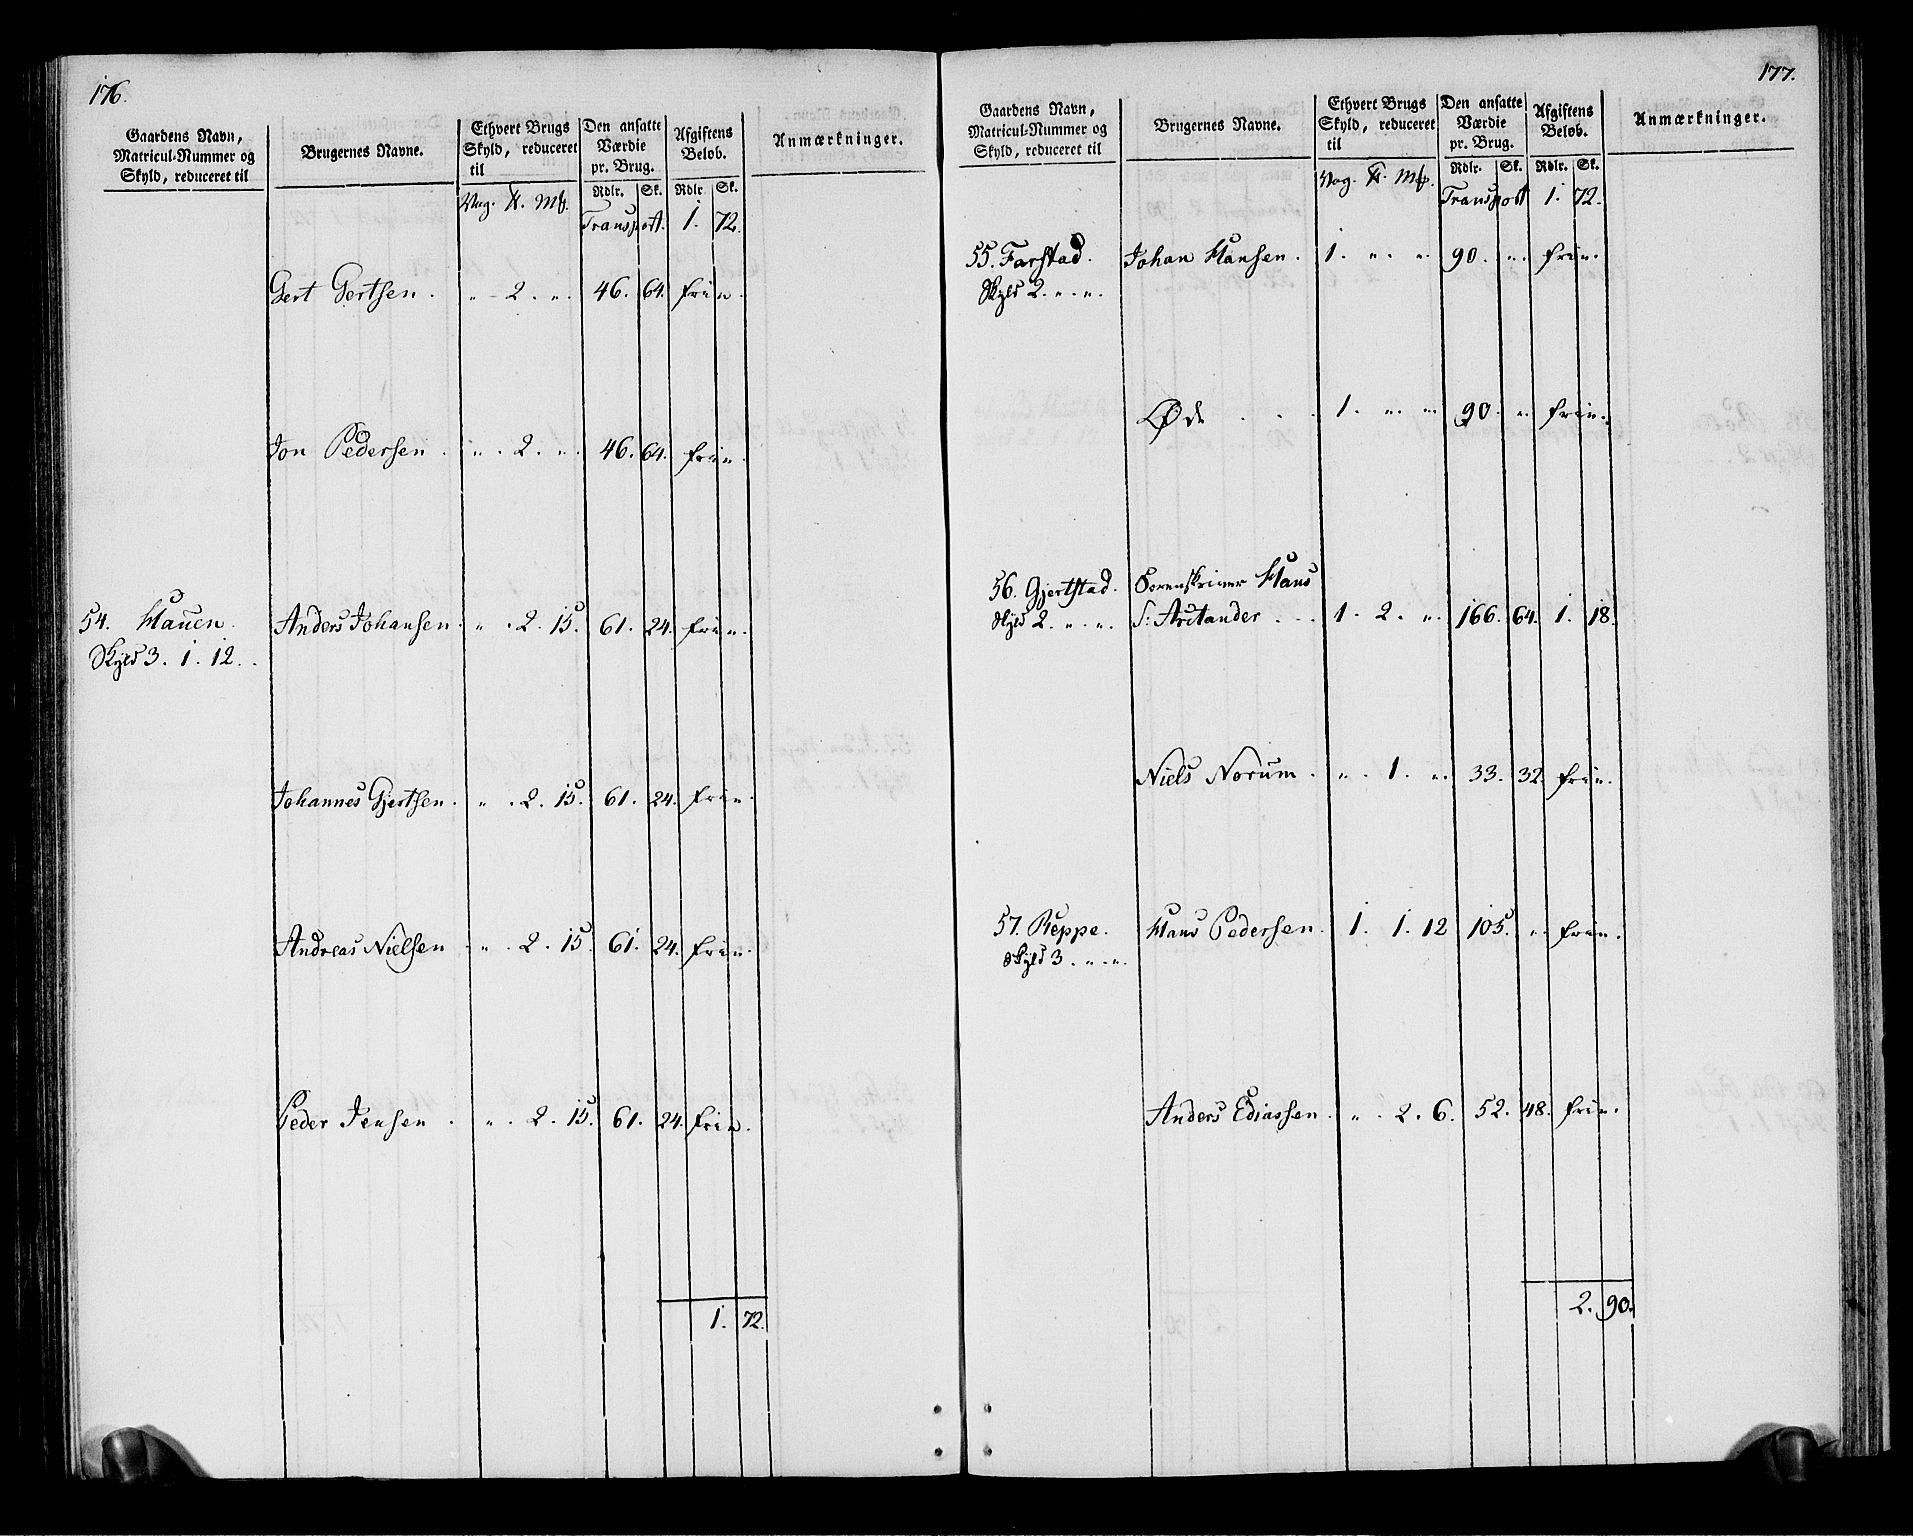 176.
Gaardens Navn, Matricul-Nummer og Skyld, reduceret til
Brugernes Navne.
Ethvert Brugs Skyld, reduceret til
Den ansatte Værdie pr. Brug.
Afgiftens Beløb.
Anmærkninger.
Vog. Mk.
Rdlr. Sk. Rdlr. Sk.
Transport. 1. 72.
Gert Gertsen. " - 2. " 46. 64. frie.
Jon Pedersen. " . 2. " 46. 64. frie.
54. Hauen. Anders Johansen. " . 2. 15. 61. 24. frie.
Skyld 3. 1. 12.
Johannes Gjertsen. " . 2. 15. 61. 24. frie.
Andreas Nielsen " . 2. 15. 61. 24. frie.
Peder Jensen. " . 2. 15. 61. 24. frie.
1. 72.
177.
Gaardens Navn, Matricul-Nummer og Skyld, reduceret til
Brugernes Navne.
Ethvert Brugs Skyld, reduceret til
Den ansatte Værdie pr. Brug.
Afgiftens Beløb.
Anmærkninger.
Vog. Mk.
Rdlr. Sk. Rdlr. Sk.
Transport 1. 72.
55. Farstad. Johan Hansen. 1. " " 90. " frie.
Skyld 2. " "
Øde . . . 1. " " 90. " frie.
56. Gjertstad. Sorenskriver Hans
Skyld 2. " " S: Arctander . . . 1. 2. " 166. 64. 1. 18.
Niels Norum. " . 1. " 33. 32. frie.
57. Reppe. Hans Pedersen. 1. 1. 12 105. " frie.
Skyld 3. " "
Anders Ediassen. " . 2. 6. 52. 48. frie.
2. 90.